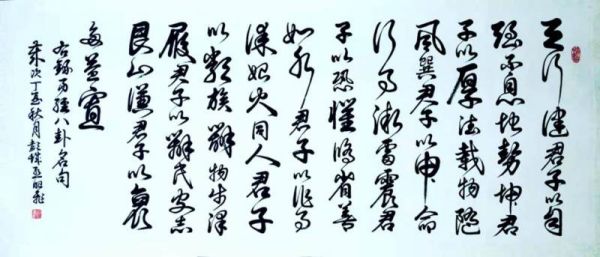 天行健君子以自
强不息地势坤君
子以厚德载物随
風巽君子以申命
行事洊雷震君
子以恐懼脩省善
如水君子以作事
谋始火同人君子
以類族辨物澤
履君子以辨民安志
艮山谦君子以裒
多益寡
右録易經八卦名句
歲次丁亥秋月彭